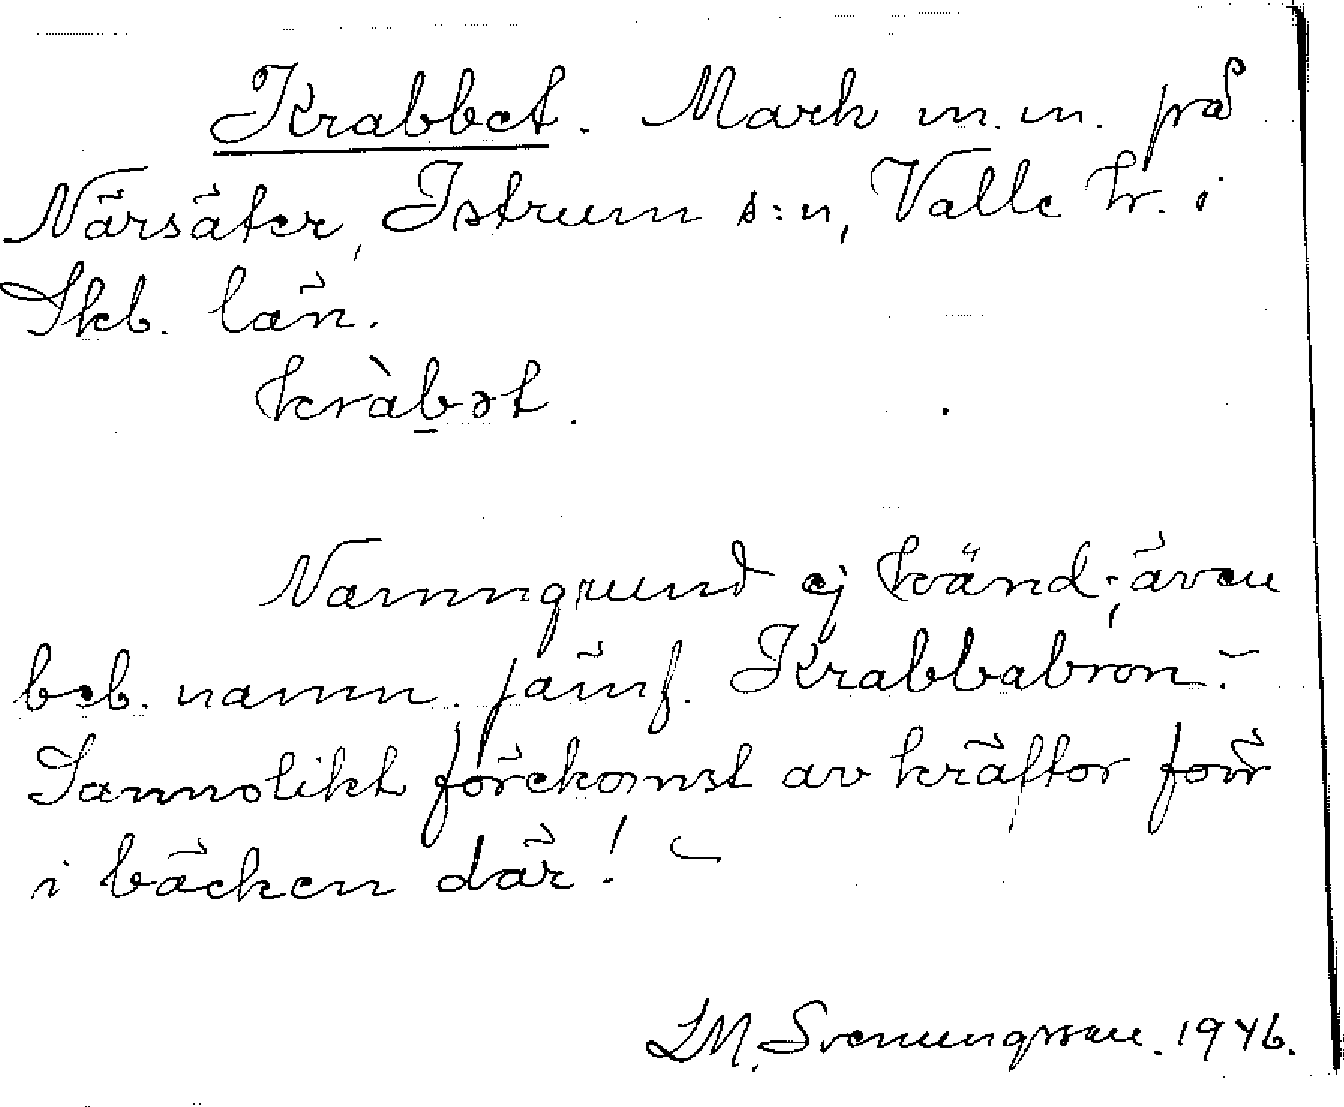 Krabbet. Mark m.m. på
Närsäter, Istrum s:n, Valle hr. i
Skb. län.
kràb̲ət.
Namngrund ej känd; även
beb. namn. jämf. Krabbabron. –
Sannolikt förekomst av kräftor förr
i bäcken där! –
LM. Svenungsson. 1946.